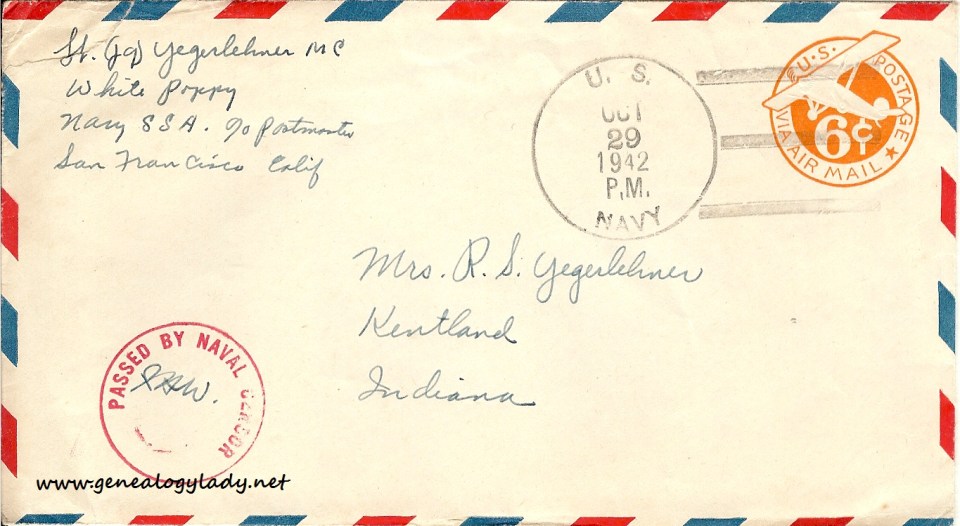 Lt. (jg) Yegerlehner MC
White Poppy
Navy SSA. c/o Postmaster
San Francisco Calif
U. S.
OCT
29
1942
P.M.
NAVY
U.S. POSTAGE
6¢
VIA AIR MAIL
Mrs. R. S. Yegerlehner
Kentland
Indiana
PASSED BY NAVAL CENSOR
www.genealogylady.net